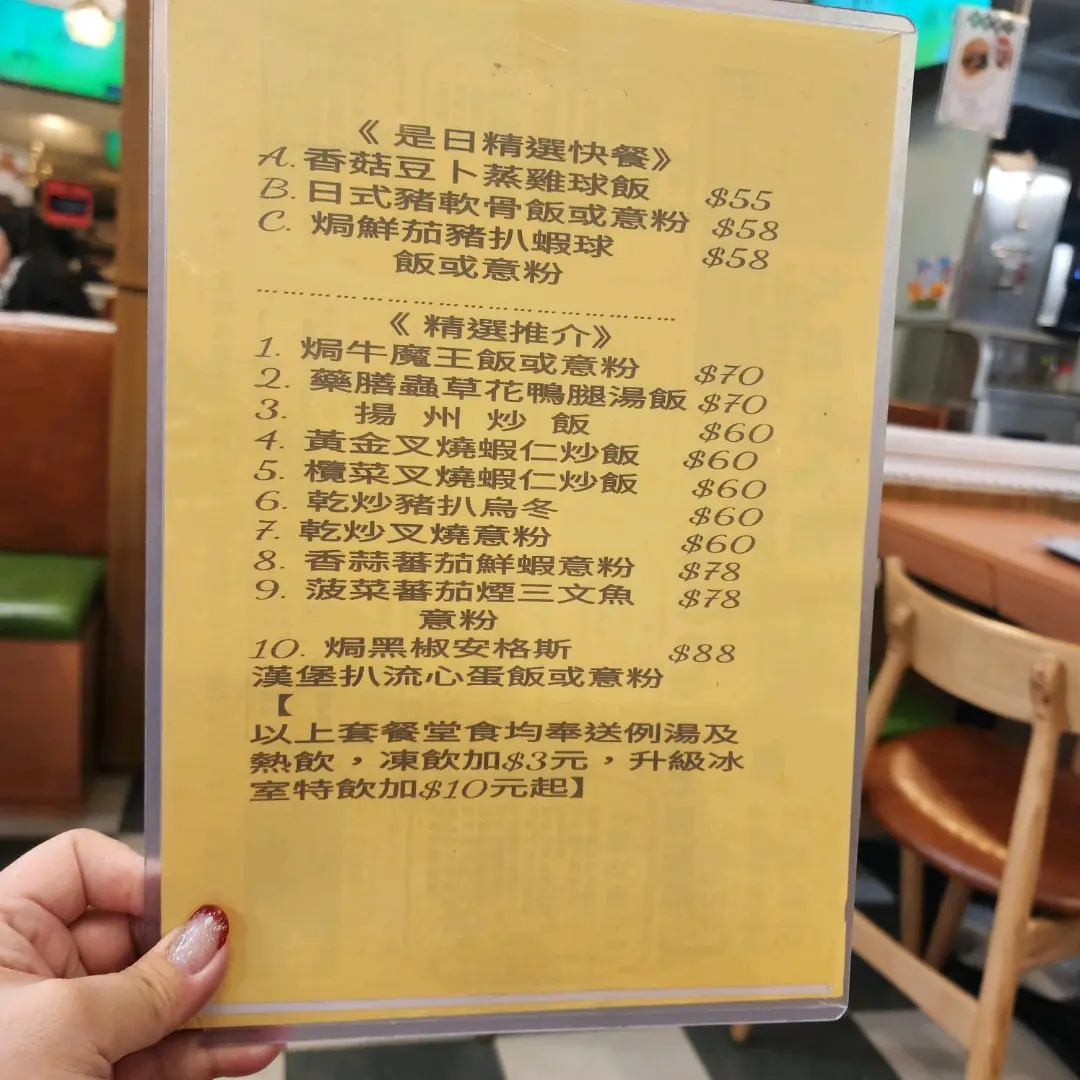 《 是日精選快餐》
A. 香菇豆卜蒸雞球飯 $55
B. 日式豬軟骨飯或意粉 $58
C. 焗鮮茄豬扒蝦球 $58
飯或意粉
《 精選推介》
1. 焗牛魔王飯或意粉 $70
2. 藥膳蟲草花鴨腿湯飯 $70
3. 揚 州 炒 飯 $60
4. 黃金叉燒蝦仁炒飯 $60
5. 欖菜叉燒蝦仁炒飯 $60
6. 乾炒豬扒烏冬 $60
7. 乾炒叉燒意粉 $60
8. 香蒜蕃茄鮮蝦意粉 $78
9. 菠菜蕃茄煙三文魚 $78
意粉
10. 焗黑椒安格斯 $88
漢堡扒流心蛋飯或意粉
【
以上套餐堂食均奉送例湯及
熱飲，凍飲加$3元，升級冰
室特飲加$10元起】